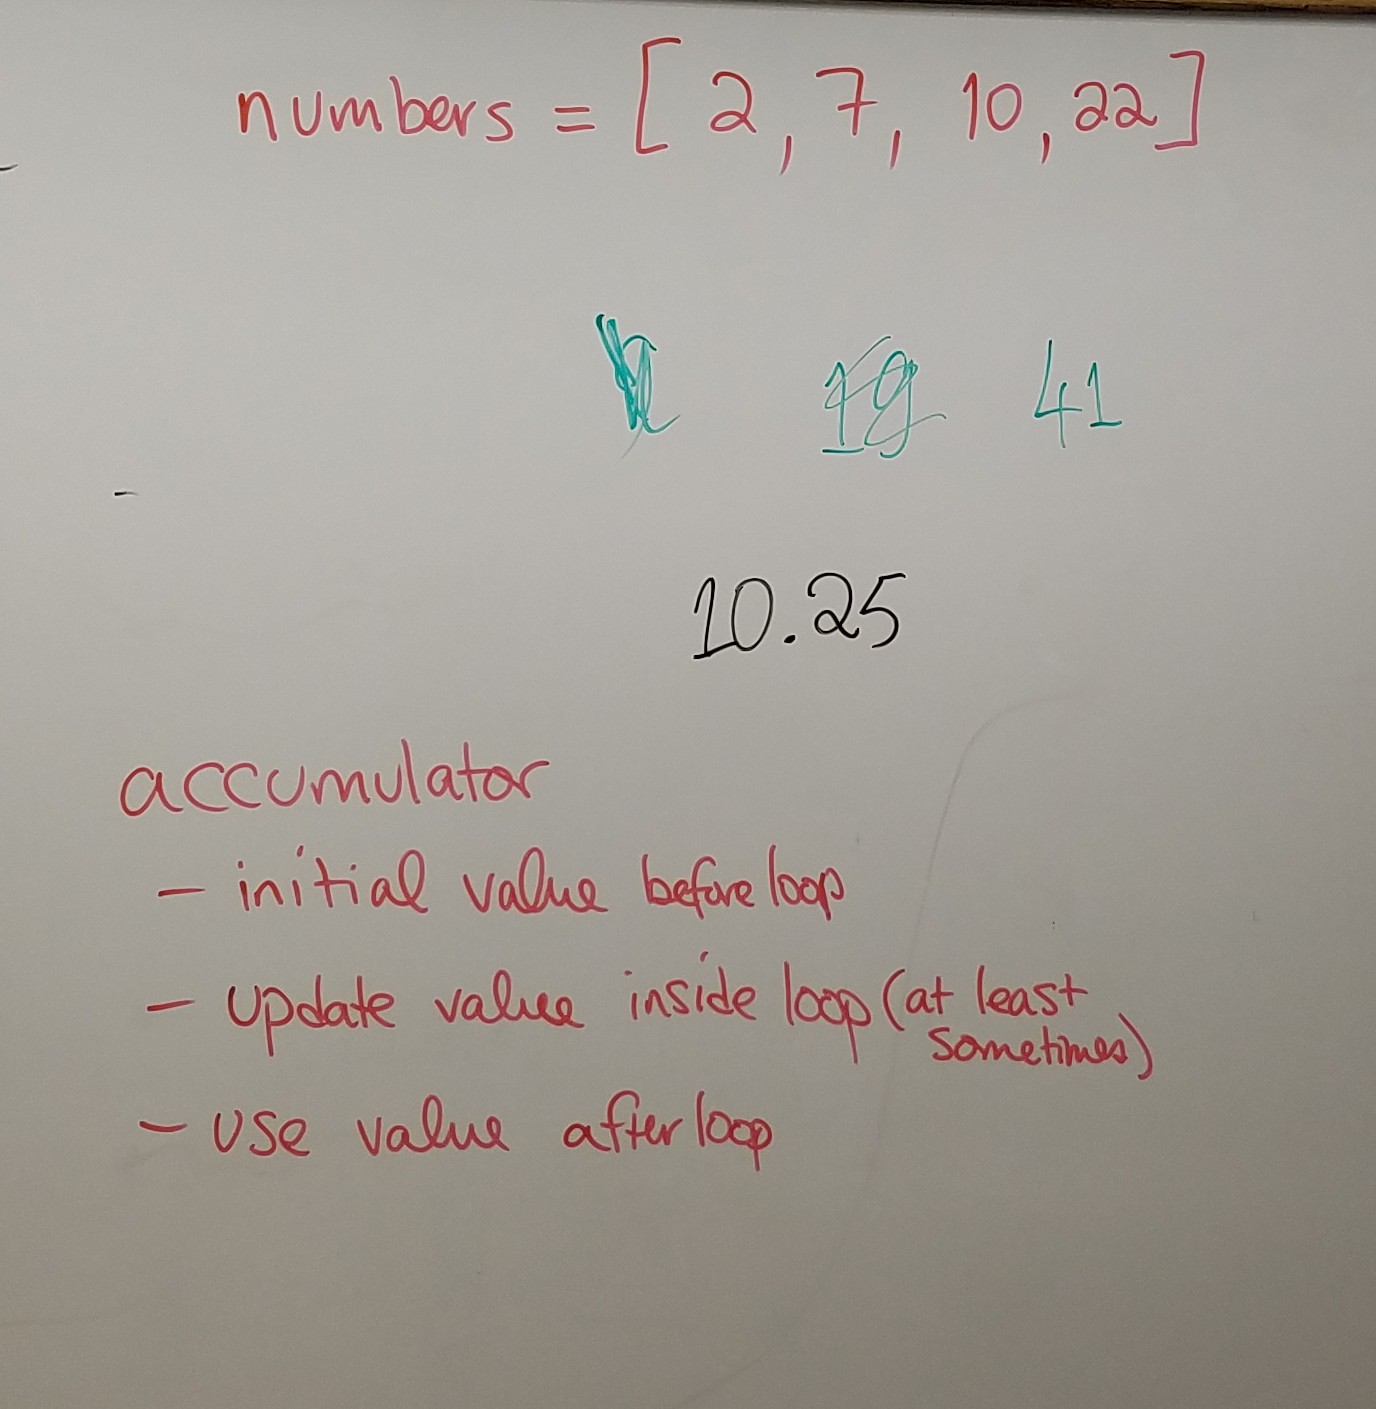 numbers = [2, 7, 10, 22]
19 41
10.25
accumulator
- initial value before loop
- update value inside loop (at least
sometimes)
- use value after loop